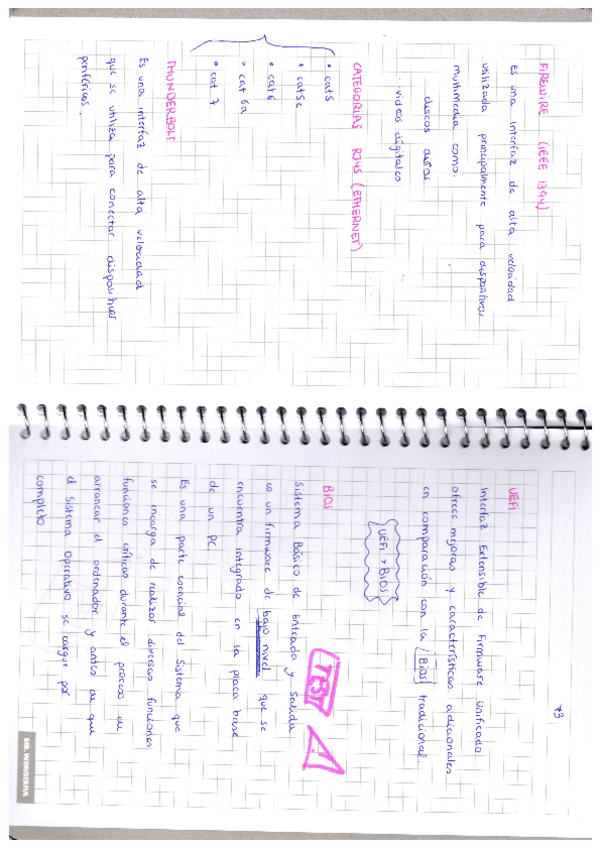 FIREWIRE (IEEE 1394)
Es una interfaz de alta velocidad
utilizada principalmente para dispositivos
multimedia como.
discos duros
· videos digitales
CATEGORIAS RJ45 (ETHERNET)
• cat5
• cat5e
• cat6
• cat 6a
• cat 7
THUNDERBOLT
Es una interfaz de alta velocidad
que se utiliza para conectar dispositivos
periféricos.
73
UEFI
Interfaz Extensible de Firmware Unificado
ofrece mejoras y características adicionales
en comparación con la BIOS tradicional.
UEFI > BIOS
BIOS
TEST
Sistema Básico de Entrada y Salida
es un firmware de bajo nivel que se
encuentra integrado en la placa base
de un PC.
Es una parte esencial del Sistema que
se encarga de realizar diversas funciones
funciones críticas durante el proceso de
arrancar el ordenador y antes de que
el Sistema Operativo se cargue por
completo
MR. WONDERFUL